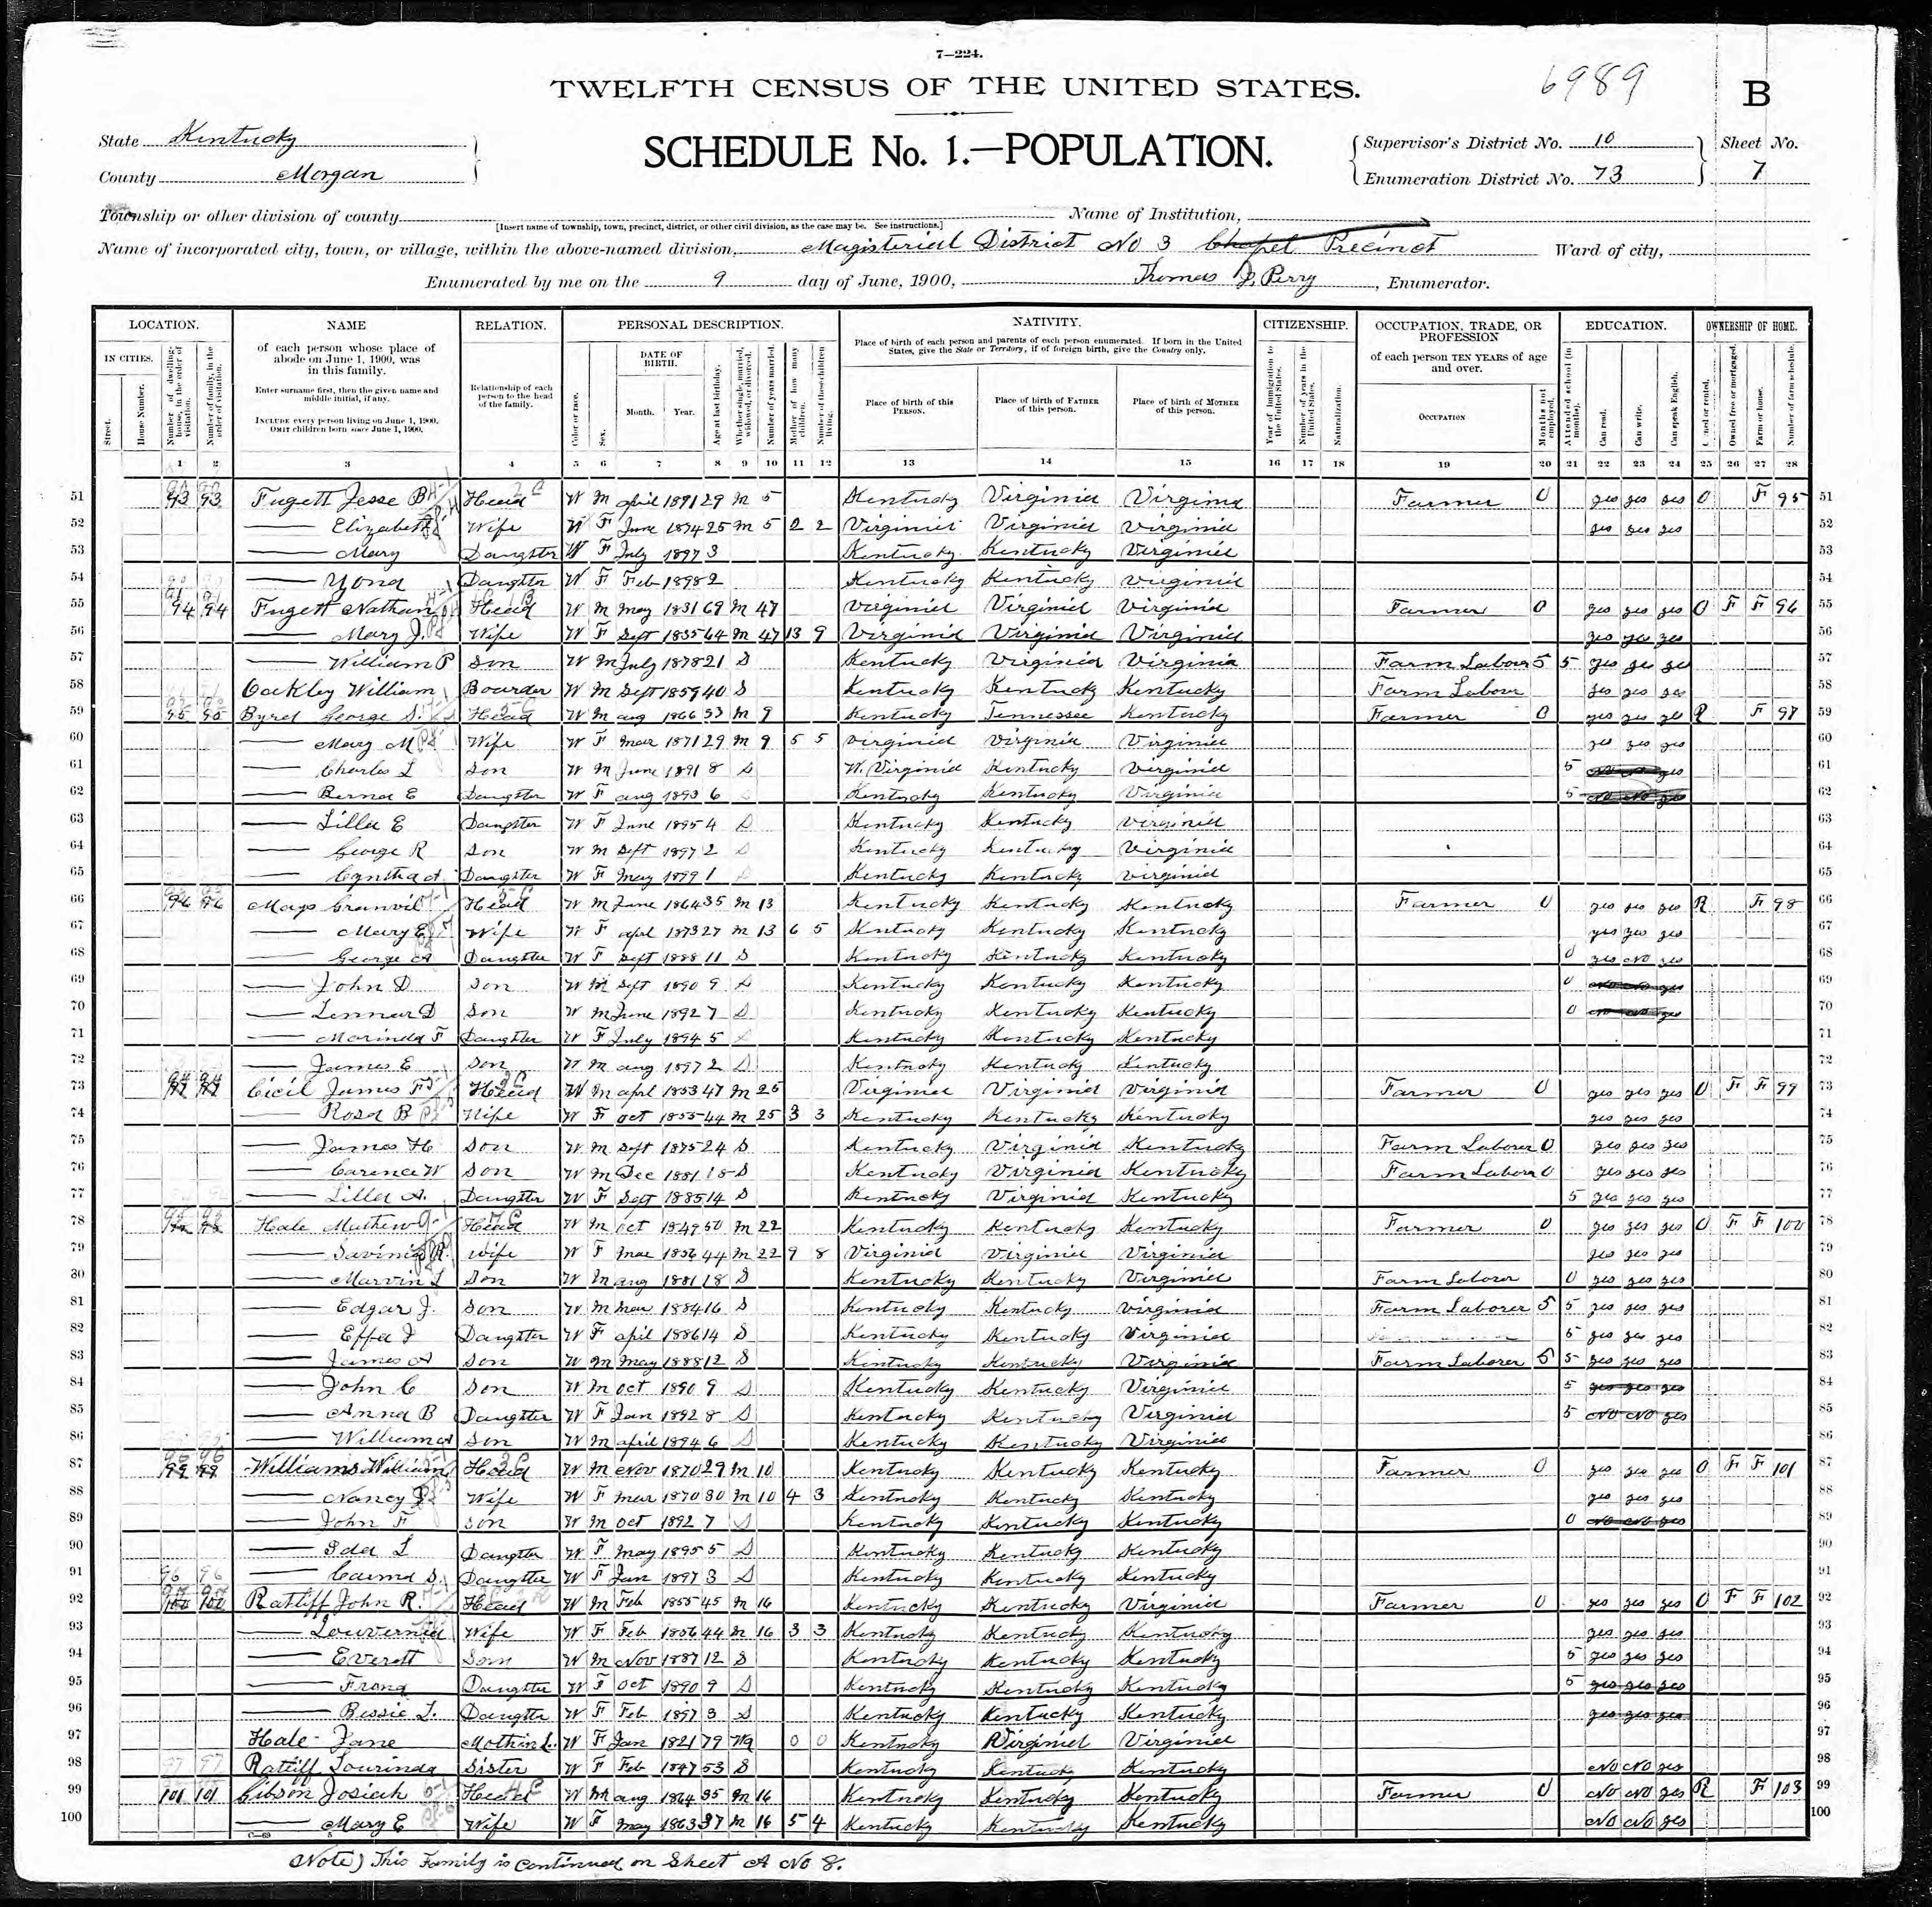 7—224.
TWELFTH CENSUS OF THE UNITED STATES.
6989
B
State Kentucky
County Morgan
SCHEDULE No. 1.—POPULATION.
Supervisor's District No. 10
Enumeration District No. 73
Sheet No.
7
Township or other division of county
Name of Institution,
[Insert name of township, town, precinct, district, or other civil division, as the case may be. See instructions.]
Name of incorporated city, town, or village, within the above-named division, Magisterial District No 3 Chapel Precinct
Ward of city,
Enumerated by me on the 9 day of June, 1900, Thomas J. Perry, Enumerator.
LOCATION. NAME RELATION. PERSONAL DESCRIPTION. NATIVITY. CITIZENSHIP. OCCUPATION, TRADE, OR PROFESSION EDUCATION. OWNERSHIP OF HOME.
IN CITIES.
Street.
House Number.
Number of dwelling-house, in the order of visitation.
Number of family, in the order of visitation.
of each person whose place of abode on June 1, 1900, was in this family.
Enter surname first, then the given name and middle initial, if any.
INCLUDE every person living on June 1, 1900.
OMIT children born since June 1, 1900.
Relationship of each person to the head of the family.
Color or race.
Sex.
DATE OF BIRTH.
Month. Year.
Age at last birthday.
Whether single, married, widowed, or divorced.
Number of years married.
Mother of how many children.
Number of these children living.
Place of birth of each person and parents of each person enumerated. If born in the United States, give the State or Territory, if of foreign birth, give the Country only.
Place of birth of this PERSON.
Place of birth of FATHER of this person.
Place of birth of MOTHER of this person.
Year of immigration to the United States.
Number of years in the United States.
Naturalization.
of each person TEN YEARS of age and over.
OCCUPATION
Months not employed.
Attended school (in months).
Can read.
Can write.
Can speak English.
Owned or rented.
Owned free or mortgaged.
Farm or house.
Number of farm schedule.
1 2 3 4 5 6 7 8 9 10 11 12 13 14 15 16 17 18 19 20 21 22 23 24 25 26 27 28
51 93 93 Fugett Jesse B Head W M april 1871 29 M 5 Kentucky Virginia Virginia Farmer 0 yes yes yes O F 95 51
52 Elizabeth Wife W F June 1874 25 M 5 2 2 Virginia Virginia Virginia yes yes yes 52
53 Mary Daughter W F July 1897 3 Kentucky Kentucky Virginia 53
54 Yona Daughter W F Feb 1898 2 Kentucky Kentucky Virginia 54
55 94 94 Fugett Nathan Head W M may 1831 69 M 47 Virginia Virginia Virginia Farmer 0 yes yes yes O F F 96 55
56 Mary J. Wife W F Sept 1835 64 M 47 13 9 Virginia Virginia Virginia yes yes yes 56
57 William P Son W M July 1878 21 S Kentucky Virginia Virginia Farm Labour 5 5 yes yes yes 57
58 Oakley William Bourder W M Sept 1859 40 S Kentucky Kentucky Kentucky Farm Labour yes yes yes 58
59 95 95 Byrd George S. Head W M aug 1866 33 M 9 Kentucky Tennessee Kentucky Farmer 0 yes yes yes R F 97 59
60 Mary M Wife W F Mar 1871 29 M 9 5 5 Virginia Virginia Virginia yes yes yes 60
61 Charles L Son W M June 1891 8 S W. Virginia Kentucky Virginia 5 No No yes 61
62 Berna E Daughter W F aug 1893 6 S Kentucky Kentucky Virginia 5 No No yes 62
63 Lilla E Daughter W F June 1895 4 S Kentucky Kentucky Virginia 63
64 George R Son W M Sept 1897 2 S Kentucky Kentucky Virginia 64
65 Cyntha A. Daughter W F May 1899 1 S Kentucky Kentucky Virginia 65
66 96 96 Mays Granvil Head W M June 1864 35 M 13 Kentucky Kentucky Kentucky Farmer 0 yes yes yes R F 98 66
67 Mary E Wife W F april 1873 27 M 13 6 5 Kentucky Kentucky Kentucky yes yes yes 67
68 George A Daughter W F Sept 1888 11 S Kentucky Kentucky Kentucky 0 yes No yes 68
69 John D Son W M Sept 1890 9 S Kentucky Kentucky Kentucky 0 No No yes 69
70 Lennar D Son W M June 1892 7 S Kentucky Kentucky Kentucky 0 No No yes 70
71 Marinda F Daughter W F July 1894 5 S Kentucky Kentucky Kentucky 71
72 James E Son W M aug 1897 2 S Kentucky Kentucky Kentucky 72
73 97 97 Cicil James F Head W M april 1853 47 M 25 Virginia Virginia Virginia Farmer 0 yes yes yes O F F 99 73
74 Rosa B Wife W F oct 1855 44 M 25 3 3 Kentucky Kentucky Kentucky yes yes yes 74
75 James H Son W M Sept 1875 24 S Kentucky Virginia Kentucky Farm Laborer 0 yes yes yes 75
76 Carence W Son W M Dec 1881 18 S Kentucky Virginia Kentucky Farm Labora 0 yes yes yes 76
77 Lilla A. Daughter W F Sept 1885 14 S Kentucky Virginia Kentucky 5 yes yes yes 77
78 Hale Mathew Head W M oct 1849 50 M 22 Kentucky Kentucky Kentucky Farmer 0 yes yes yes O F F 100 78
79 Savinia R. Wife W F Mar 1856 44 M 22 9 8 Virginia Virginia Virginia yes yes yes 79
80 Marvin L Son W M aug 1881 18 S Kentucky Kentucky Virginia Farm Laborer 0 yes yes yes 80
81 Edgar J. Son W M Mar 1884 16 S Kentucky Kentucky Virginia Farm Laborer 5 5 yes yes yes 81
82 Effa J Daughter W F april 1886 14 S Kentucky Kentucky Virginia 5 yes yes yes 82
83 James A Son W M May 1888 12 S Kentucky Kentucky Virginia Farm Laborer 5 5 yes yes yes 83
84 John C Son W M oct 1890 9 S Kentucky Kentucky Virginia 5 yes yes yes 84
85 Anna B Daughter W F Jan 1892 8 S Kentucky Kentucky Virginia 5 No No yes 85
86 William A Son W M april 1894 6 S Kentucky Kentucky Virginia 86
87 99 99 Williams William Head W M Nov 1870 29 M 10 Kentucky Kentucky Kentucky Farmer 0 yes yes yes O F F 101 87
88 Nancy J Wife W F Mar 1870 30 M 10 4 3 Kentucky Kentucky Kentucky yes yes yes 88
89 John F Son W M oct 1892 7 S Kentucky Kentucky Kentucky 0 No No yes 89
90 Ida L Daughter W F May 1895 5 S Kentucky Kentucky Kentucky 90
91 Carma S. Daughter W F Jan 1897 3 S Kentucky Kentucky Kentucky 91
92 100 100 Ratliff John R. Head W M Feb 1855 45 M 16 Kentucky Kentucky Virginia Farmer 0 yes yes yes O F F 102 92
93 Louvernia Wife W F Feb 1856 44 M 16 3 3 Kentucky Kentucky Kentucky yes yes yes 93
94 Everett Son W M Nov 1887 12 S Kentucky Kentucky Kentucky 5 yes yes yes 94
95 Frona Daughter W F oct 1890 9 S Kentucky Kentucky Kentucky 5 yes yes yes 95
96 Bessie L. Daughter W F Feb 1897 3 S Kentucky Kentucky Kentucky yes yes yes 96
97 Hale Jane Mothin L. W F Jan 1821 79 Wd 0 0 Kentucky Virginia Virginia 97
98 Ratliff Lourinda Sister W F Feb 1847 53 S Kentucky Kentucky Kentucky No No yes 98
99 101 101 Gibson Josiah Head W M aug 1864 35 M 16 Kentucky Kentucky Kentucky Farmer 0 No No yes R F 103 99
100 Mary E Wife W F May 1863 37 M 16 5 4 Kentucky Kentucky Kentucky No No yes 100
(Note) This Family is continued on Sheet A No 8.